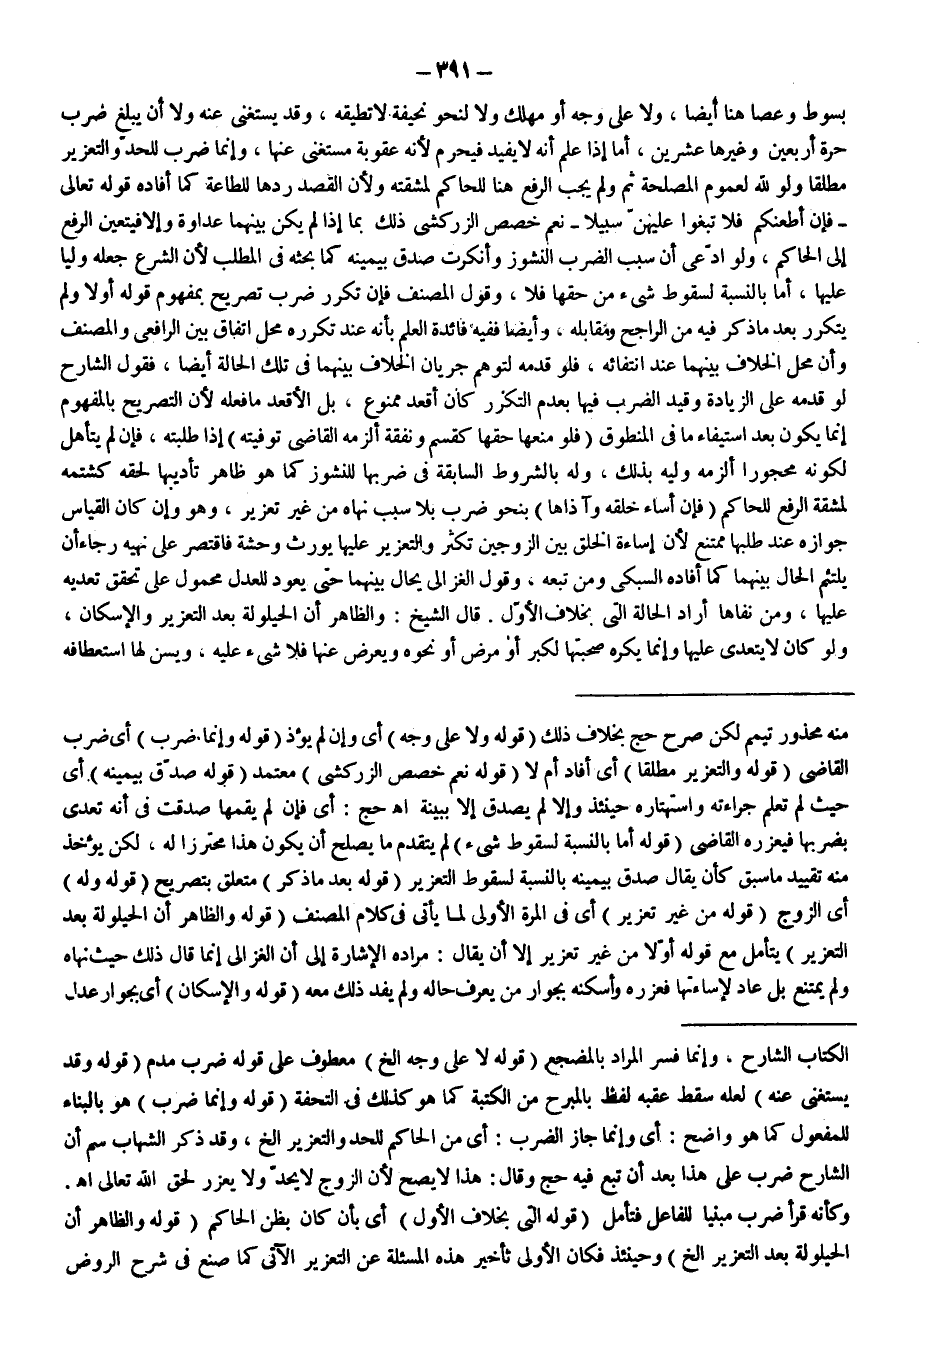 – ٣٩١ –
بسوط وعصا هنا أيضا ، ولا على وجه أو مهلك ولا لنحو نحيفة لاتطيقه ، وقد يستغنى عنه ولا أن يبلغ ضرب
حرة أربعين وغيرها عشرين ، أما إذا علم أنه لايفيد فيحرم لأنه عقوبة مستغنى عنها ، وإنما ضرب للحدّ والتعزير
مطلقا ولو لله لعموم المصلحة ثم ولم يجب الرفع هنا للحاكم لمشقته ولأن القصد ردها للطاعة كما أفاده قوله تعالى
ـ فإن أطعنكم فلا تبغوا عليهنّ سبيلا ـ نعم خصص الزركشى ذلك بما إذا لم يكن بينهما عداوة وإلافيتعين الرفع
إلى الحاكم ، ولو ادّعى أن سبب الضرب النشوز وأنكرت صدق بيمينه كما بحثه فى المطلب لأن الشرع جعله وليا
عليها ، أما بالنسبة لسقوط شىء من حقها فلا ، وقول المصنف فإن تكرر ضرب تصريح بمفهوم قوله أولا ولم
يتكرر بعد ماذكر فيه من الراجح ومقابله ، وأيضا ففيه فائدة العلم بأنه عند تكرره محل اتفاق بين الرافعى والمصنف
وأن محل الخلاف بينهما عند انتفائه ، فلو قدمه لتوهم جريان الخلاف بينهما فى تلك الحالة أيضا ، فقول الشارح
لو قدمه على الزيادة وقيد الضرب فيها بعدم التكرر كان أقعد ممنوع ، بل الأقعد مافعله لأن التصريح بالمفهوم
إنما يكون بعد استيفاء ما فى المنطوق ( فلو منعها حقها كقسم ونفقة ألزمه القاضى توفيته ) إذا طلبته ، فإن لم يتأهل
لكونه محجورا ألزمه وليه بذلك ، وله بالشروط السابقة فى ضربها للنشوز كما هو ظاهر تأديبها لحقه كشتمه
لمشقة الرفع للحاكم ( فإن أساء خلقه وآذاها ) بنحو ضرب بلا سبب نهاه من غير تعزير ، وهو وإن كان القياس
جوازه عند طلبها ممتنع لأن إساءة الخلق بين الزوجين تكثر والتعزير عليها يورث وحشة فاقتصر على نهيه رجاءأن
يلتئم الحال بينهما كما أفاده السبكى ومن تبعه ، وقول الغزالى يحال بينهما حتى يعود للعدل محمول على تحقق تعديه
عليها ، ومن نفاها أراد الحالة التى بخلاف الأوّل . قال الشيخ : والظاهر أن الحيلولة بعد التعزير والإسكان ،
ولو كان لايتعدى عليها وإنما يكره صحبتها لكبر أو مرض أو نحوه ويعرض عنها فلا شىء عليه ، ويسن لها استعطافه
منه محذور تيمم لكن صرح حج بخلاف ذلك ( قوله ولا على وجه ) أى وإن لم يؤذ ( قوله وإنما ضرب ) أى ضرب
القاضى ( قوله والتعزير مطلقا ) أى أفاد أم لا ( قوله نعم خصص الزركشى ) معتمد ( قوله صدّق بيمينه ) أى
حيث لم تعلم جراءته واستهتاره حينئذ وإلا لم يصدق إلا ببينة اه حج : أى فإن لم يقمها صدقت فى أنه تعدى
بضربها فيعزره القاضى ( قوله أما بالنسبة لسقوط شىء ) لم يتقدم ما يصلح أن يكون هذا محترزا له ، لكن يؤخذ
منه تقييد ماسبق كأن يقال صدق بيمينه بالنسبة لسقوط التعزير ( قوله بعد ماذكر ) متعلق بتصريح ( قوله وله )
أى الزوج ( قوله من غير تعزير ) أى فى المرة الأولى لما يأتى فى كلام المصنف ( قوله والظاهر أن الحيلولة بعد
التعزير ) يتأمل مع قوله أوّلا من غير تعزير إلا أن يقال : مراده الإشارة إلى أن الغزالى إنما قال ذلك حيث نهاه
ولم يمتنع بل عاد لإساءتها فعزره وأسكنه بجوار من يعرف حاله ولم يفد ذلك معه ( قوله والإسكان ) أى بجوار عدل
الكتاب الشارح ، وإنما فسر المراد بالمضجع ( قوله لا على وجه الخ ) معطوف على قوله ضرب مدم ( قوله وقد
يستغنى عنه ) لعله سقط عقبه لفظ بالمبرح من الكتبة كما هو كذلك فى التحفة ( قوله وإنما ضرب ) هو بالبناء
للمفعول كما هو واضح : أى وإنما جاز الضرب : أى من الحاكم للحد والتعزير الخ ، وقد ذكر الشهاب سم أن
الشارح ضرب على هذا بعد أن تبع فيه حج وقال : هذا لايصح لأن الزوج لايحدّ ولا يعزر لحق الله تعالى اه .
وكأنه قرأ ضرب مبنيا للفاعل فتأمل ( قوله التى بخلاف الأول ) أى بأن كان بظن الحاكم ( قوله والظاهر أن
الحيلولة بعد التعزير الخ ) وحينئذ فكان الأولى تأخير هذه المسئلة عن التعزير الآتى كما صنع فى شرح الروض